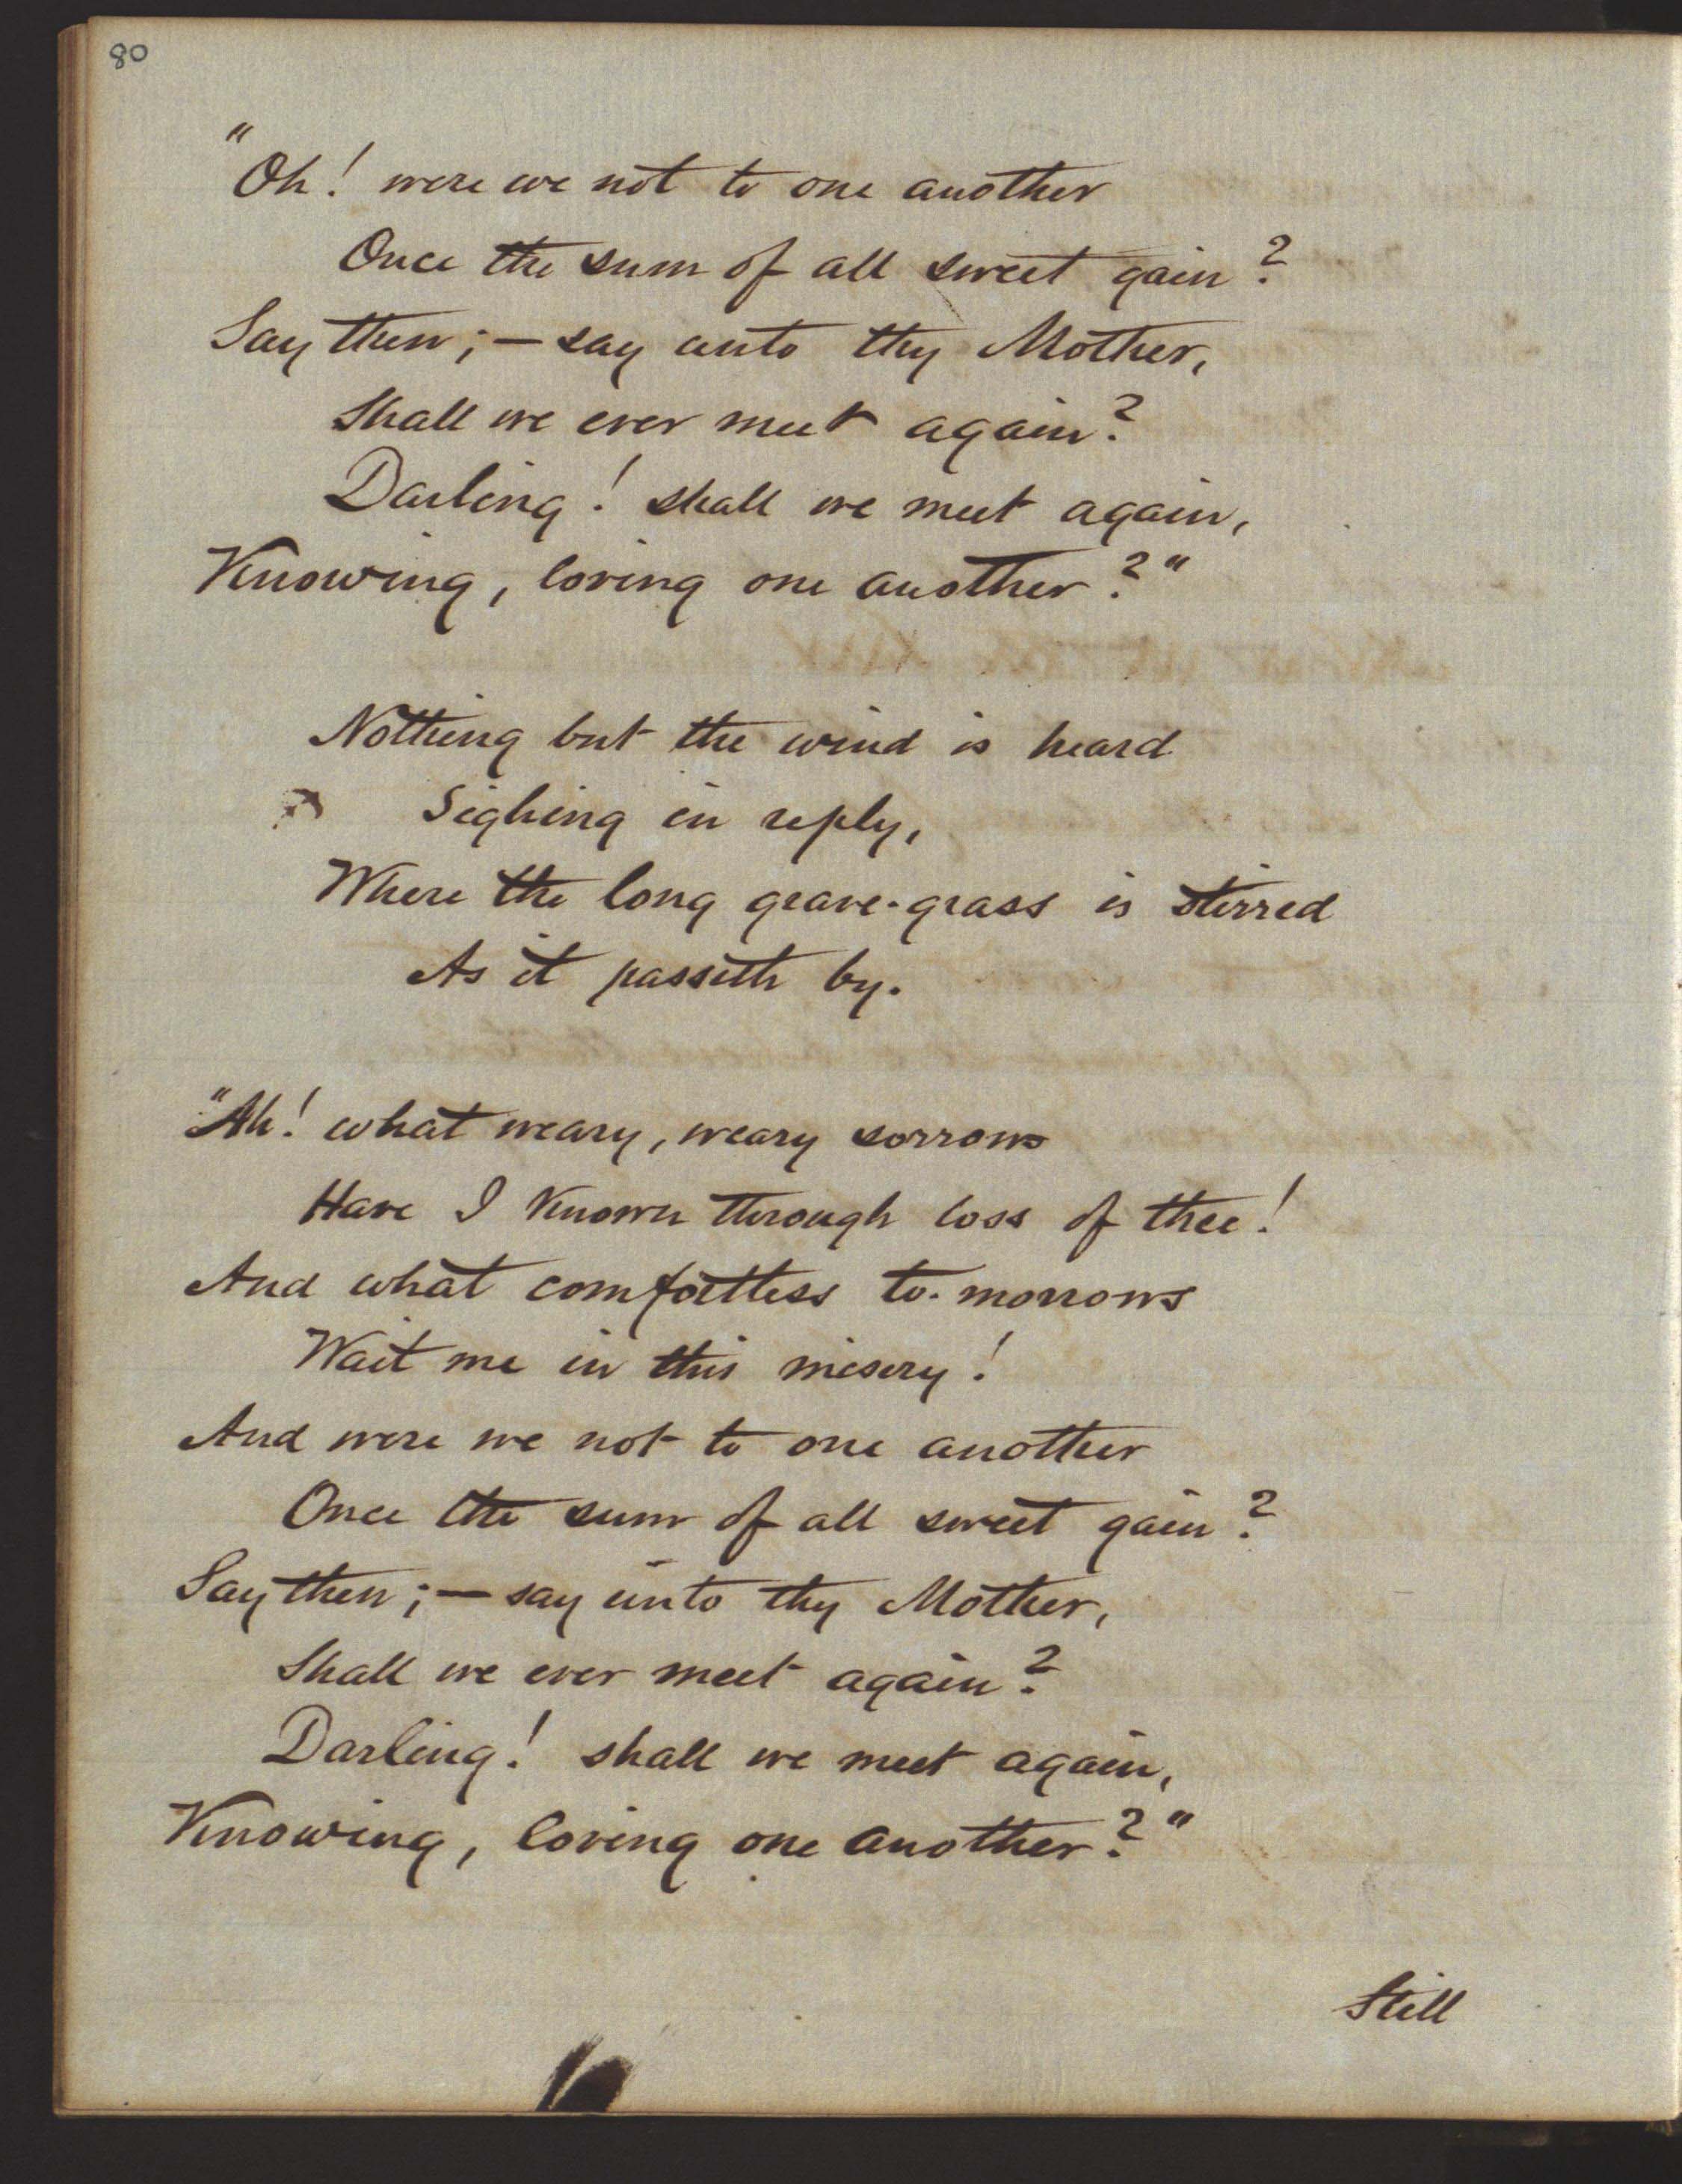 80
"Oh! were we not to one another
Once the sum of all sweet gain?
Say then; — say unto thy Mother,
Shall we ever meet again?
Darling! shall we meet again,
Knowing, loving one another?"
Nothing but the wind is heard
Sighing in reply,
Where the long grave-grass is stirred
As it passeth by.
"Ah! what weary, weary sorrows
Have I known through loss of thee!
And what comfortless to-morrows
Wait me in this misery!
And were we not to one another
Once the sum of all sweet gain?
Say then; — say unto thy Mother,
Shall we ever meet again?
Darling! shall we meet again,
Knowing, loving one another?"
Still